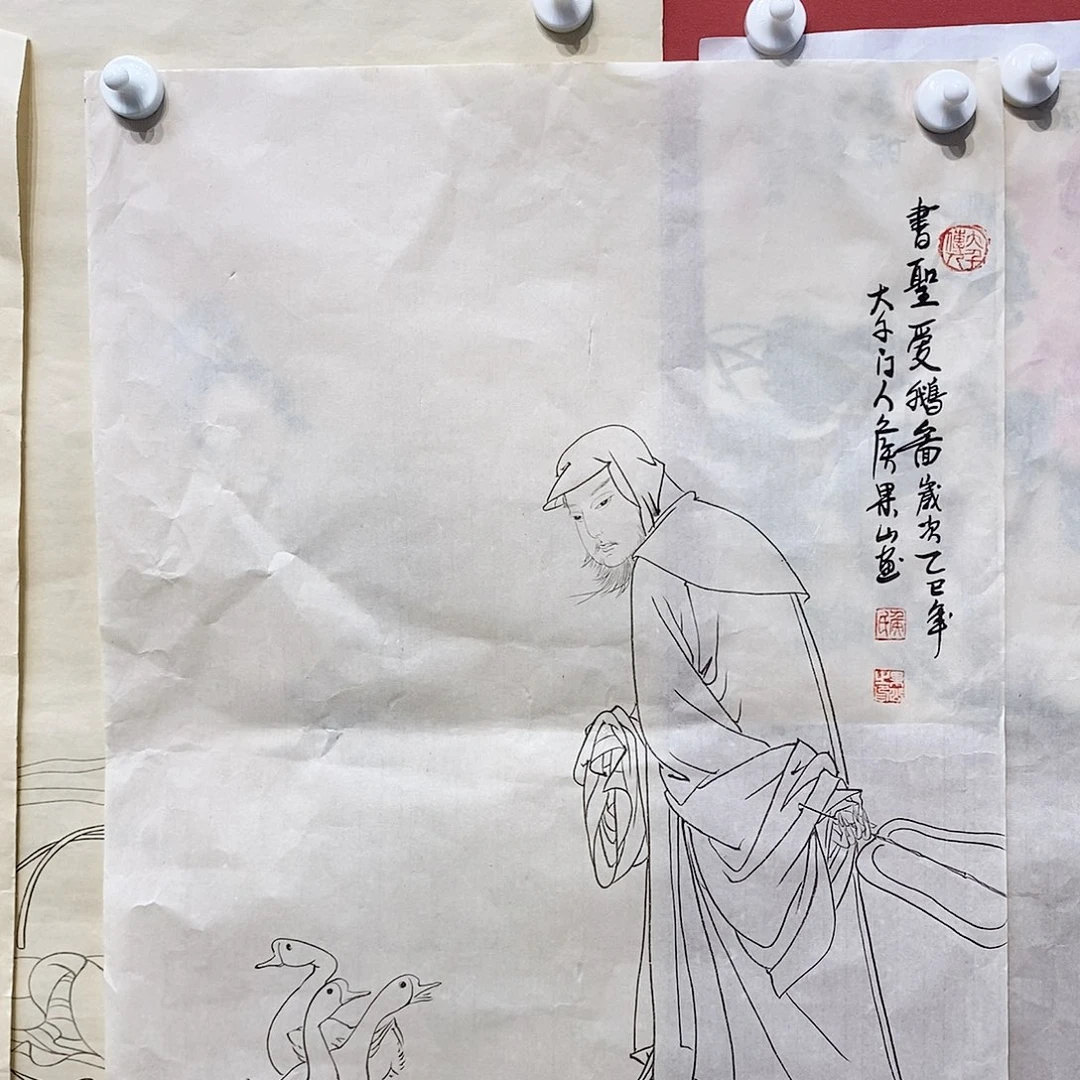 書聖愛鵝圖歲次乙巳年
大千门人侯果山畫